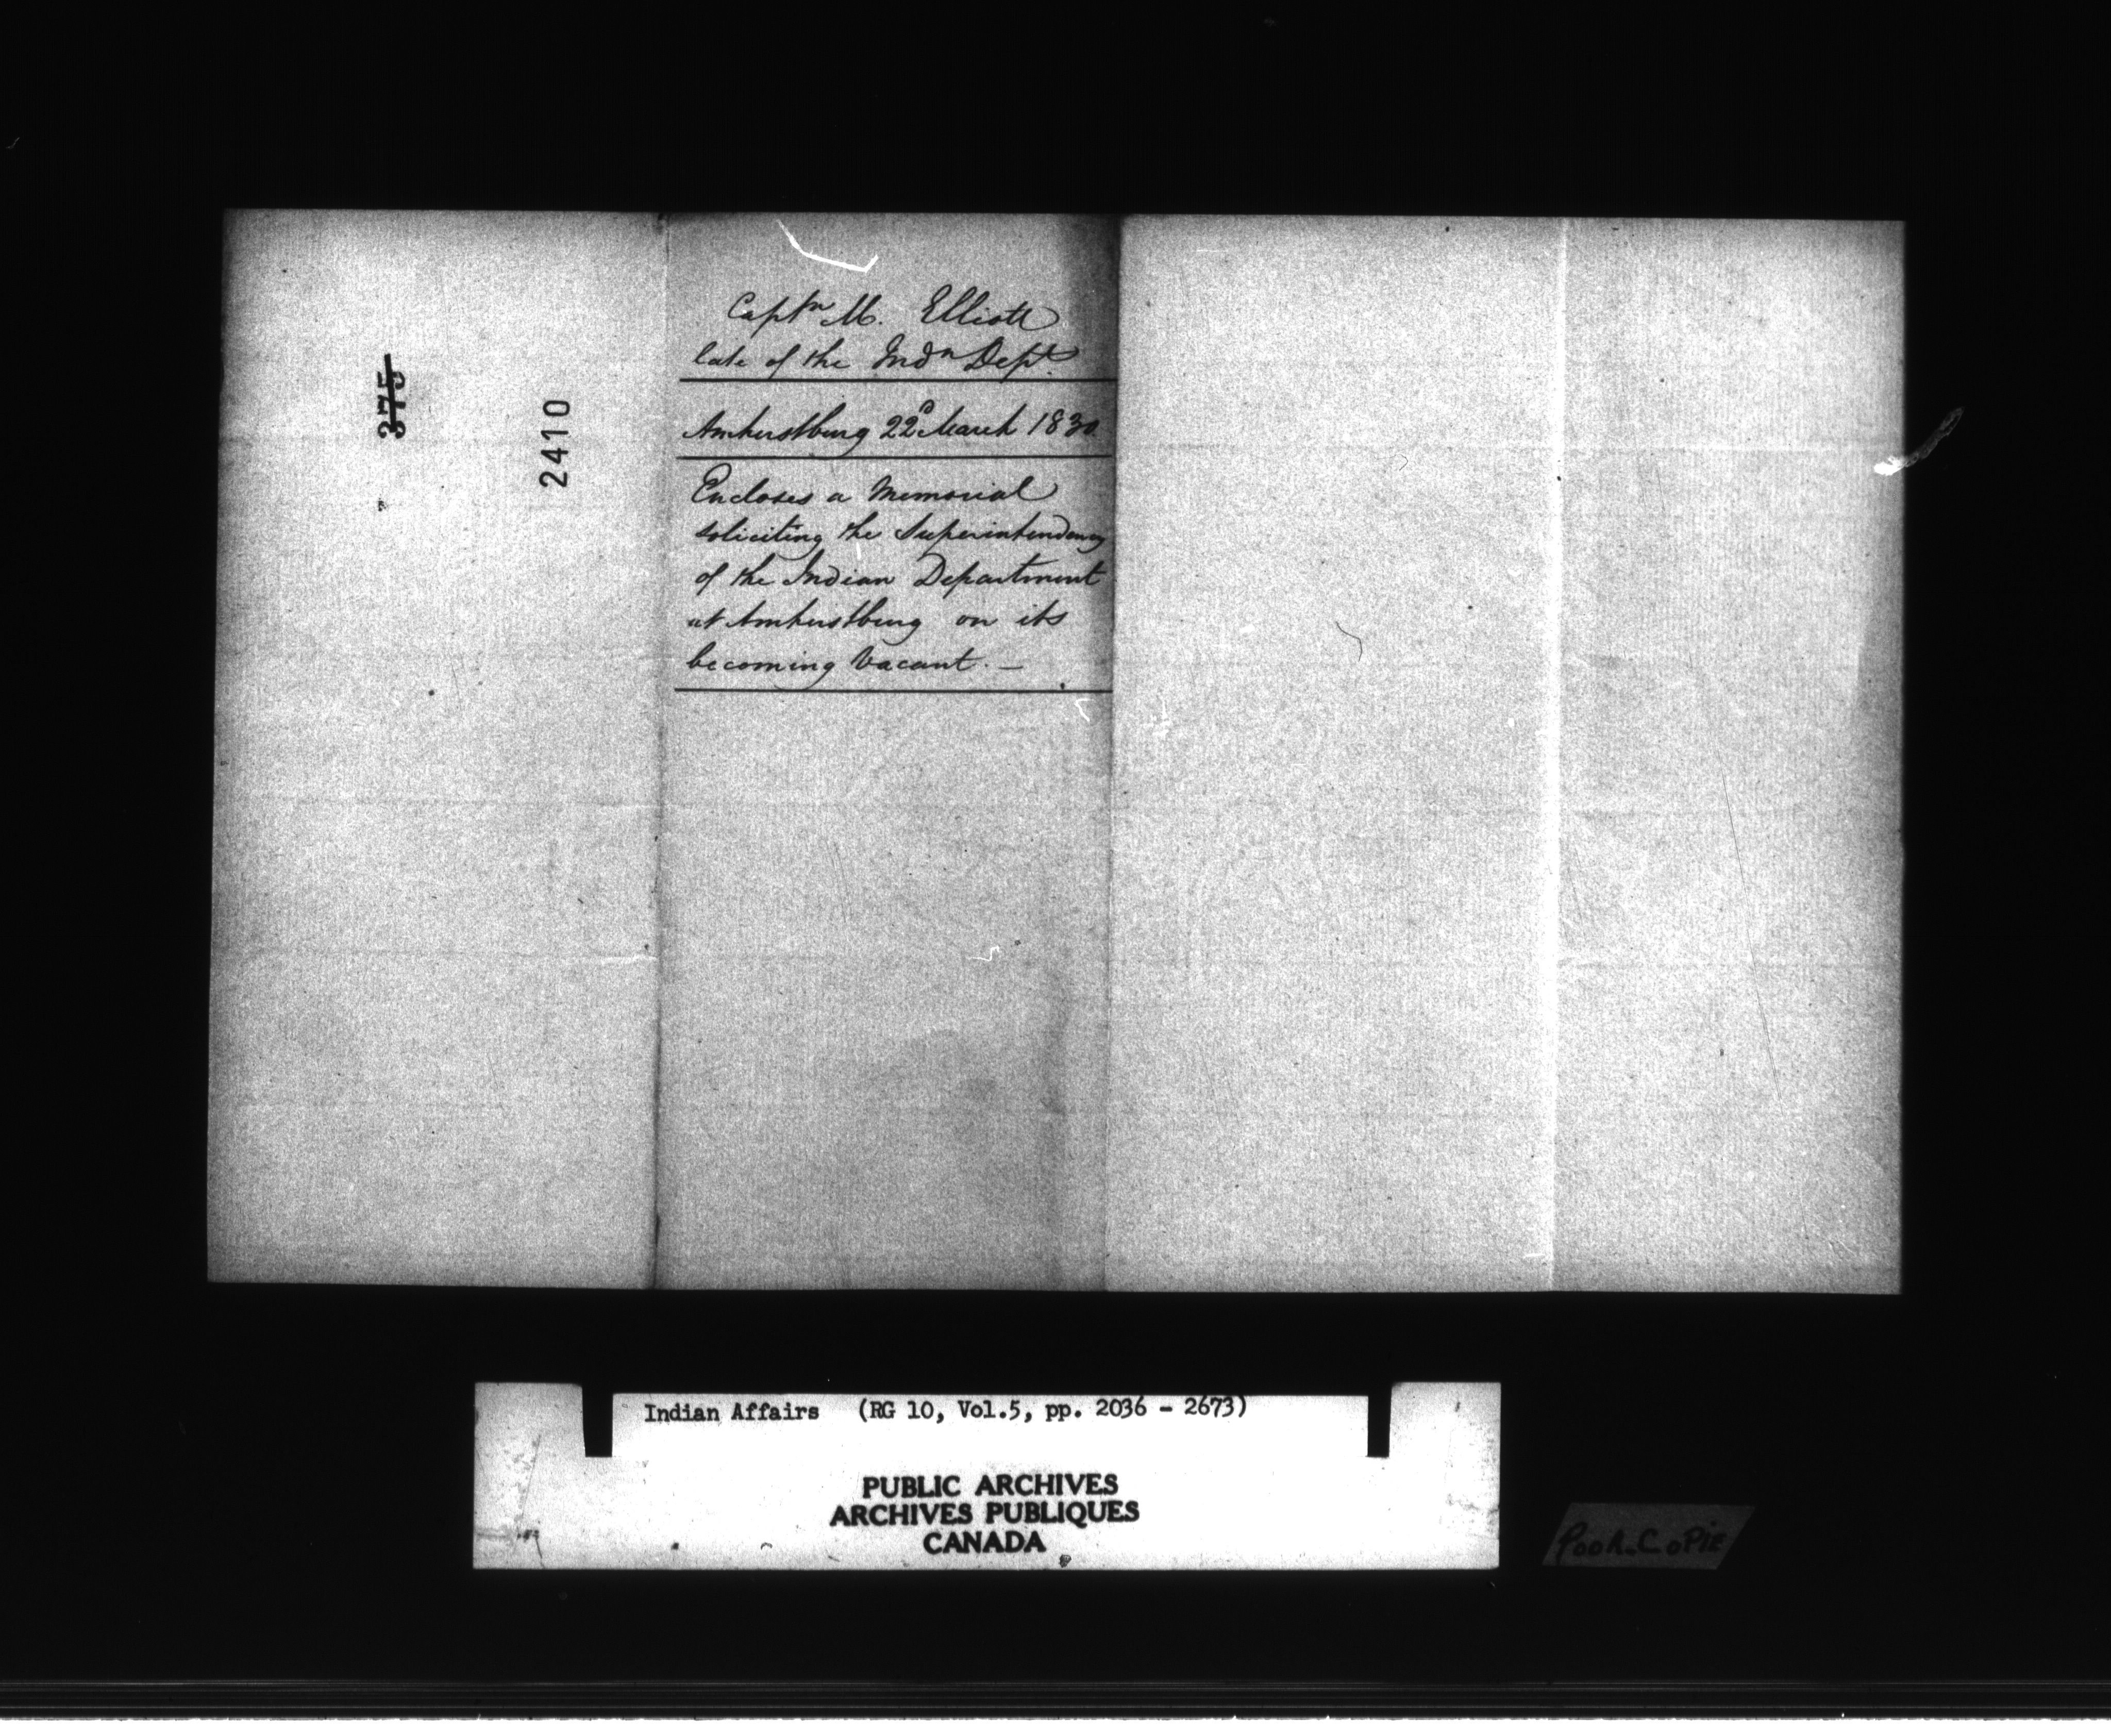 375
2410
Captn M. Elliott
late of the Indn Dept.
Amherstburg 22d March 1830.
Encloses a Memorial
soliciting the Superintendency
of the Indian Department
at Amherstburg on its
becoming Vacant. —
Indian Affairs (RG 10, Vol.5, pp. 2036 - 2673)
PUBLIC ARCHIVES
ARCHIVES PUBLIQUES
CANADA
POOR COPIE